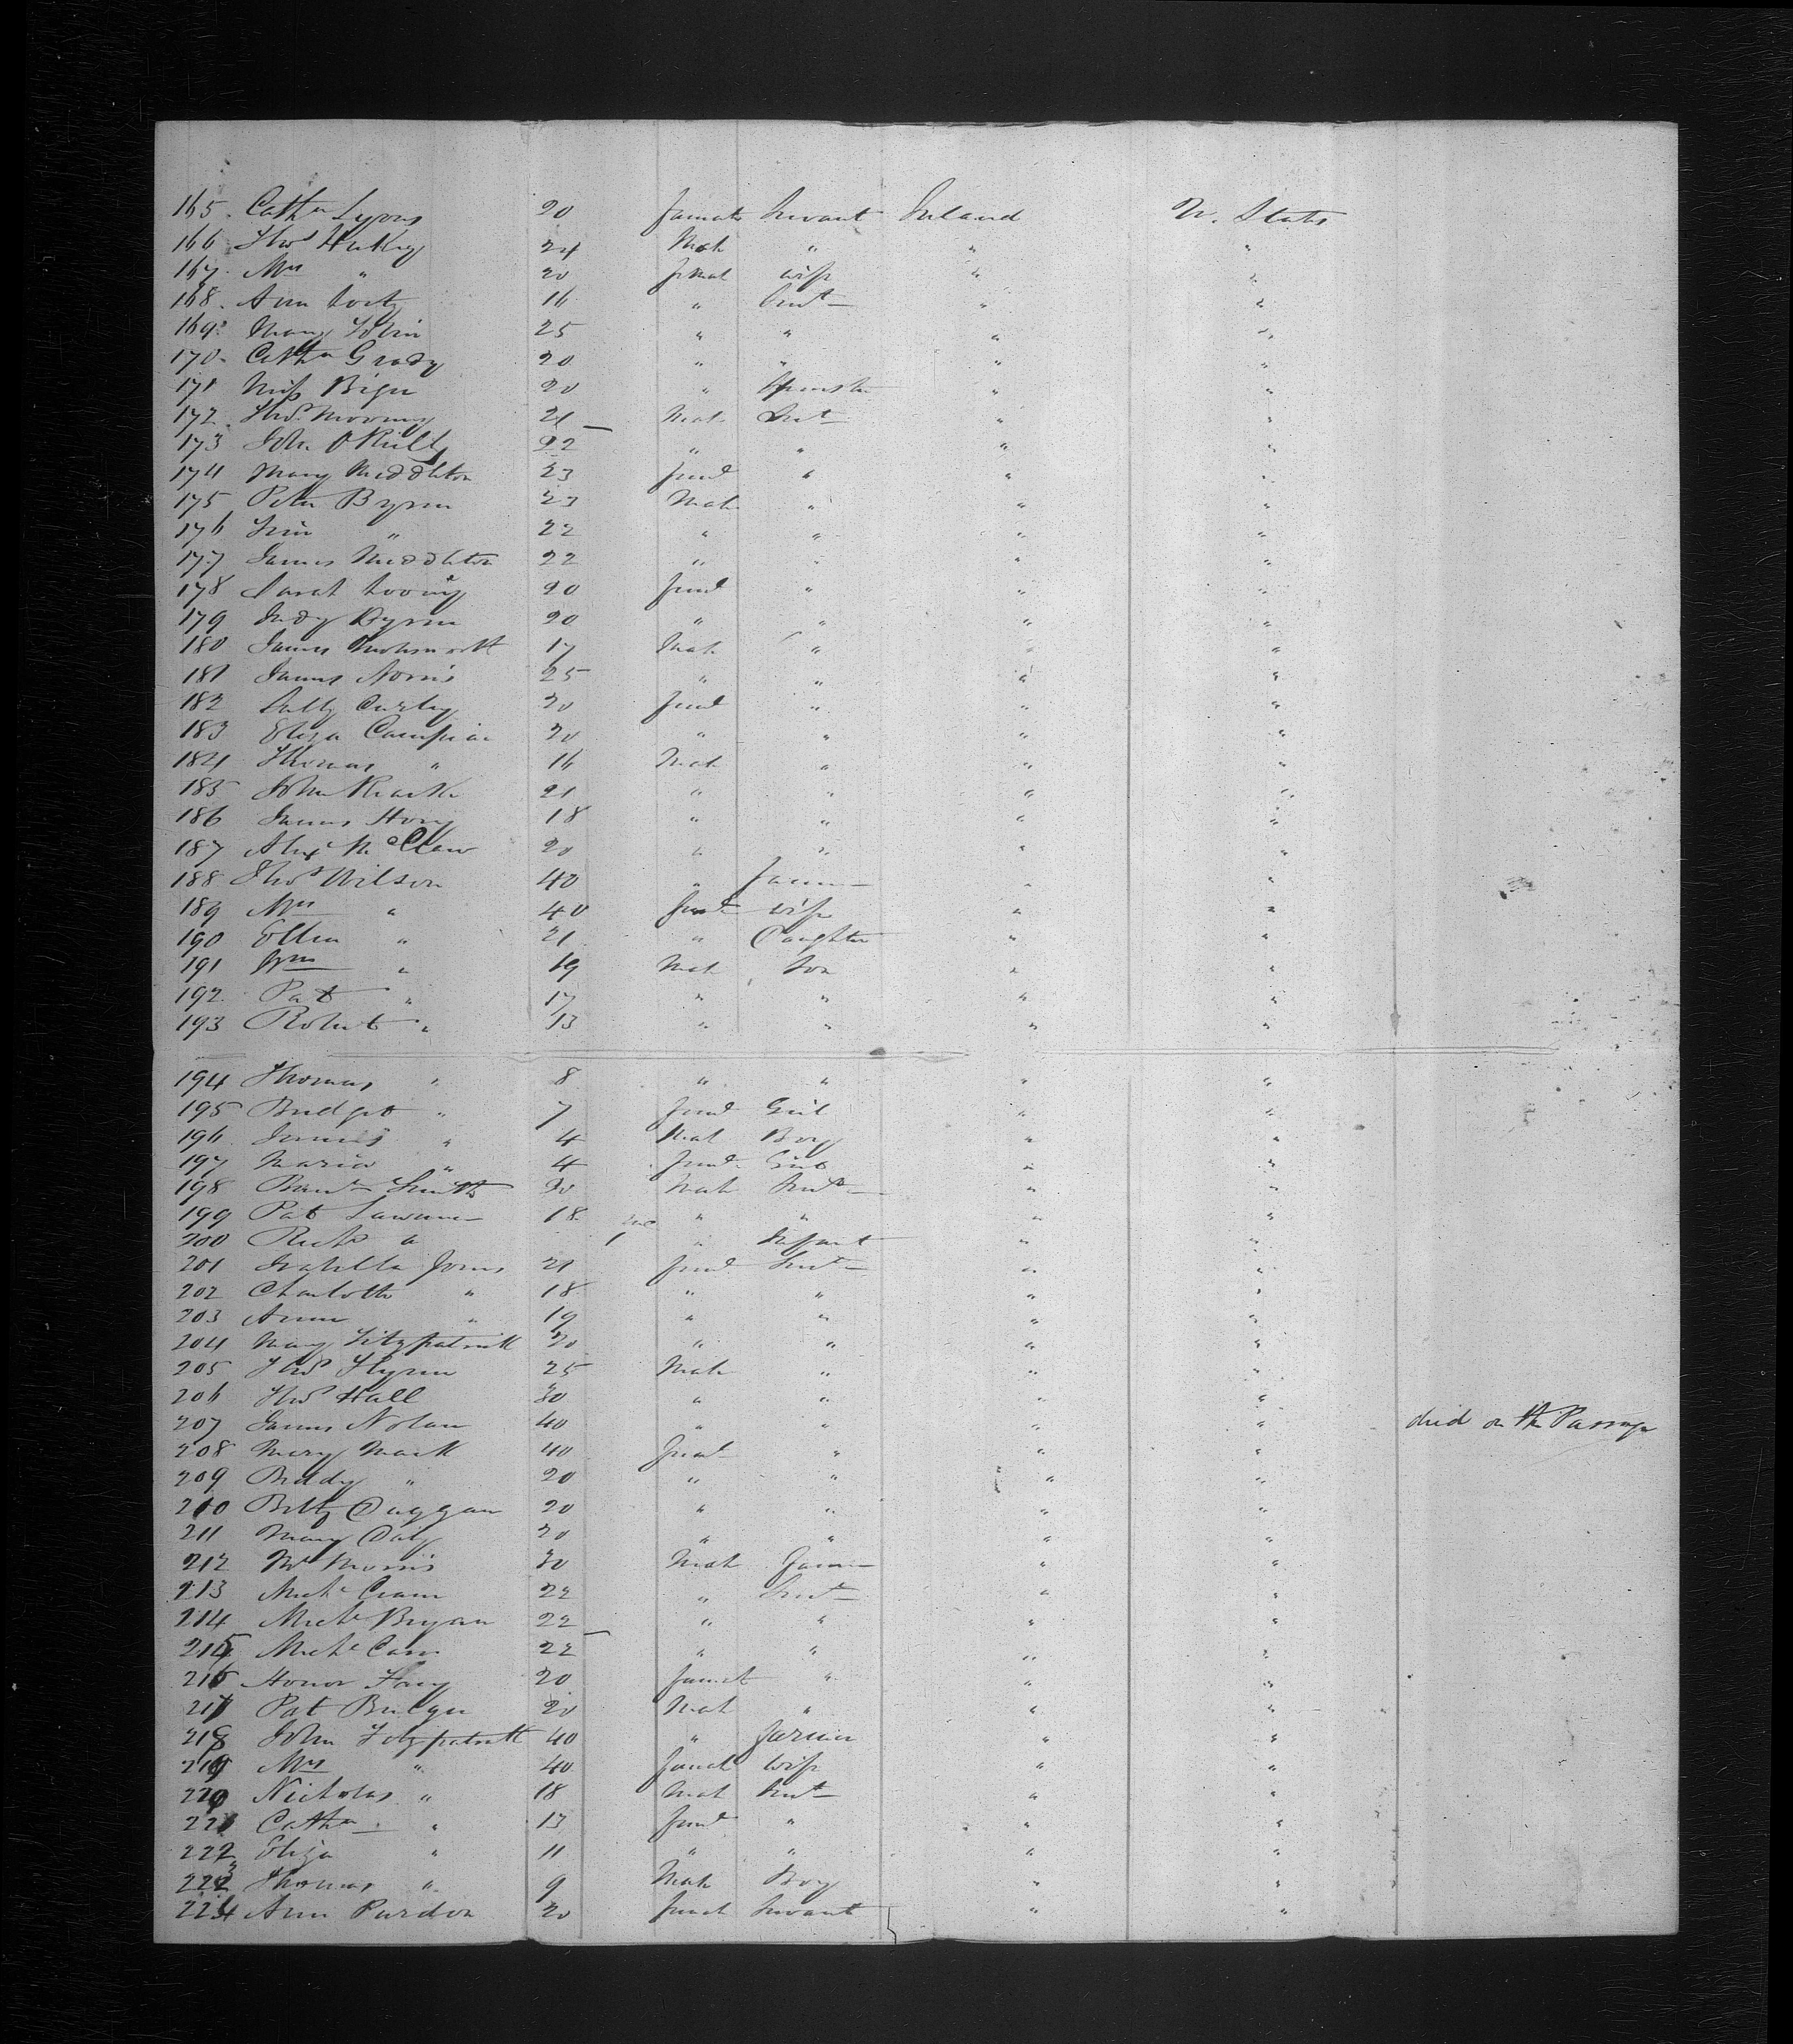 165. Cathn Lyons 20 Female Servant Ireland U. States
166 Thos 24 Male " " "
167. Mrs " 20 Femal wife " "
168. Ann 16 " Sert " "
169. Mary Tobin 25 " " " "
170. Cathn Grady 20 " " " "
171 Miss 20 " Spinster " "
172. Thos Mooney 21 Male Sert " "
173 John O'Reilly 22 " " " "
174 Mary Middleton 23 Femal " " "
175 Peter Byrne 23 Male " " "
176 " 22 " " " "
177 James Middleton 22 " " " "
178 Sarah 20 Femal " " "
179 Judy Byrne 20 " " " "
180 James 17 Male " " "
181 James Norris 25 " " " "
182 Sally Curley 20 Femal " " "
183 Eliza Campion 20 " " " "
184 Thomas " 16 Male " " "
185 John 21 " " " "
186 James 18 " " " "
187 Alexr McClaw 20 " " " "
188 Thos Wilson 40 " Farmer " "
189 Mrs " 40 Femal wife " "
190 Ellen " 21 " Daughter " "
191 Wm " 19 Male Son " "
192 Pat " 17 " " " "
193 Robert " 13 " " " "
194 Thomas " 8 " " " "
195 Bridget " 7 Femal Girl " "
196 James " 4 Male Boy " "
197 Maria " 4 Femal Girl " "
198 Smith 20 Male Sert " "
199 Pat Lawrence 18 " " " "
200 Richd " " Infant " "
201 Isabella Jones 21 Femal Sert " "
202 Charlotte " 18 " " " "
203 Anne " 19 " " " "
204 Mary Fitzpatrick 20 " " " "
205 Thos Flynn 25 Male " " "
206 Thos Hall 30 " " " "
207 James Nolan 40 " " " " died on the Passage
208 Mary Mack 40 Femal " " "
209 Biddy " 20 " " " "
210 Betty Duggan 20 " " " "
211 Mary Daly 20 " " " "
212 Morris 30 Male Farmer " "
213 Michl 22 " Sert " "
214 Michl Bryan 22 " " " "
215 Michl 22 " " " "
216 Honor 20 Femal " " "
217 Pat 20 Male " " "
218 John Fitzpatrick 40 " Farmer " "
219 Mrs " 40 Femal wife " "
220 Nicholas " 18 Male Sert " "
221 Cathn " 13 Femal " " "
222 Eliza " 11 " " " "
223 Thomas " 9 Male Boy " "
224 Ann Purdon 20 Femal Servant " "